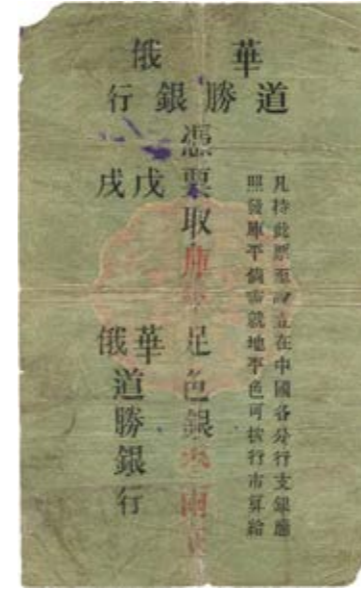 華俄
道勝銀行
凡持此票至設立在中國各分行支銀應
照發庫平倘需就地平色可按行市算給
憑票取庫平足色銀叁兩正
戊戌
華俄
道勝銀行